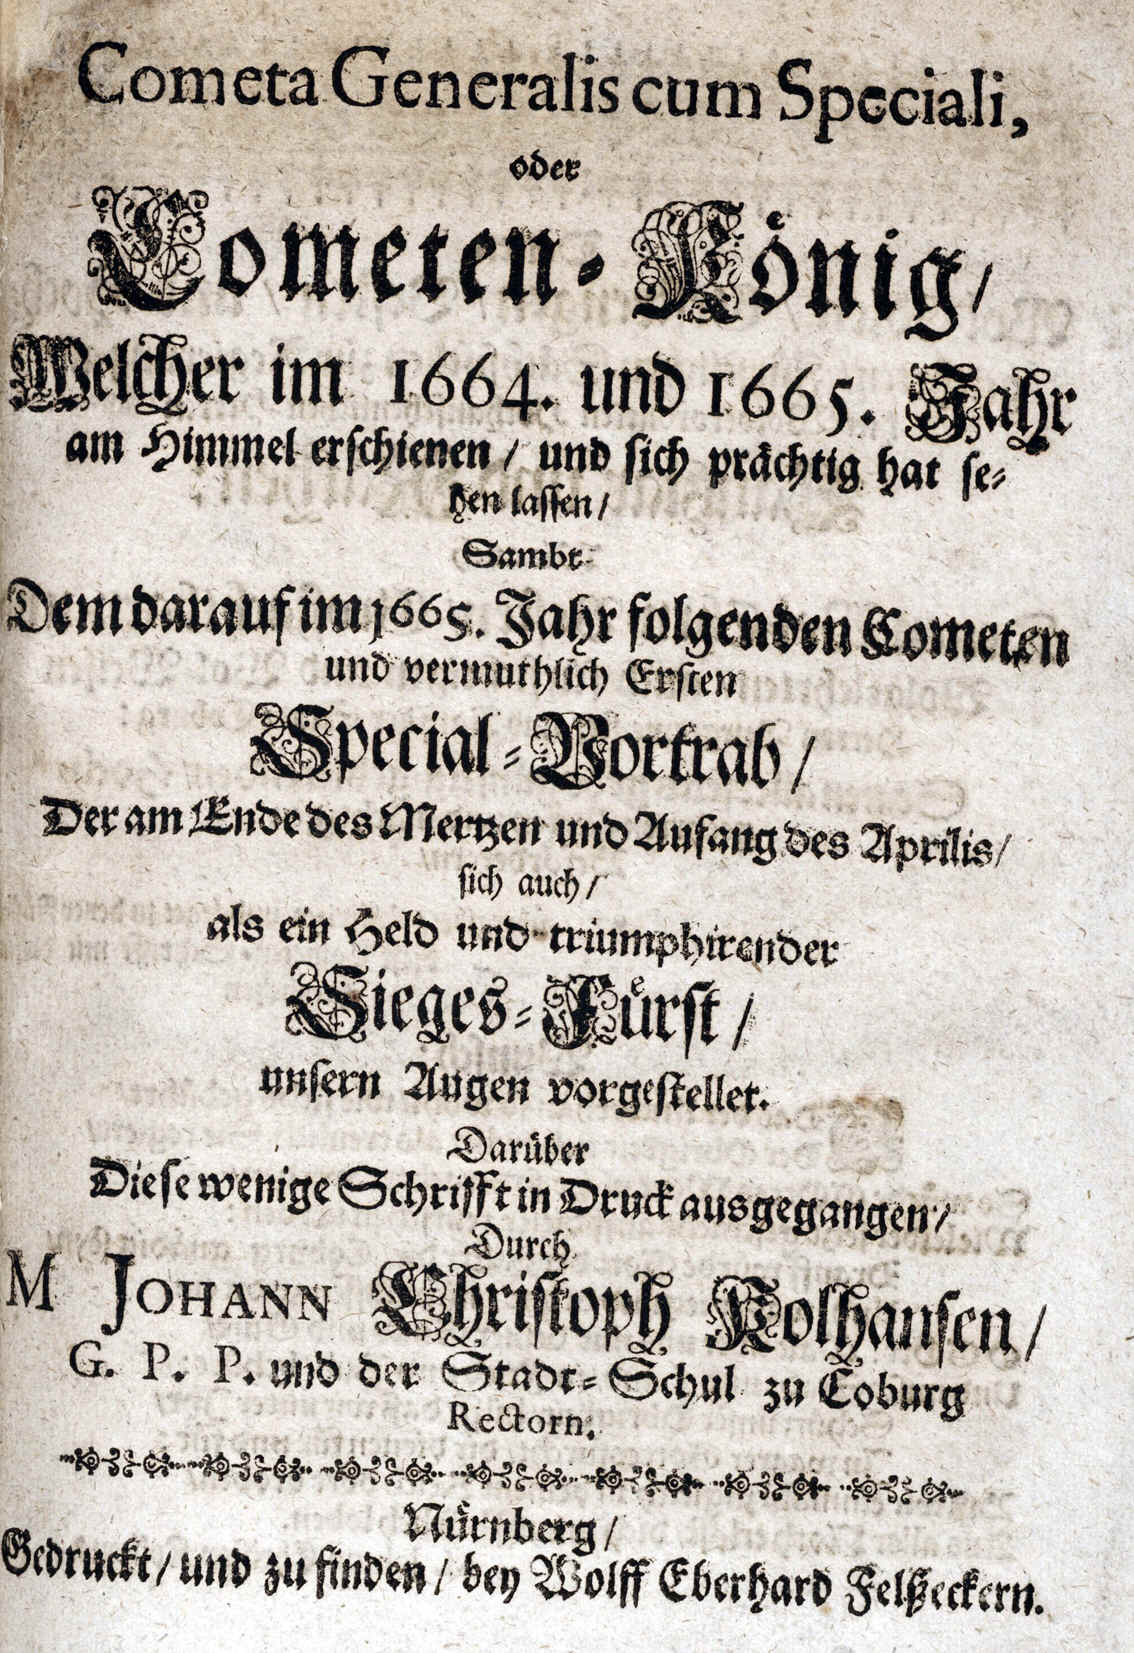 Cometa Generalis cum Speciali,
oder
Cometen-König/
Welcher im 1664. und 1665. Jahr
am Himmel erschienen / und sich prächtig hat se-
hen lassen /
Sambt
Dem darauf im 1665. Jahr folgenden Cometen
und vermuthlich Ersten
Special-Vortrab /
Der am Ende des Mertzen und Aufang des Aprilis /
sich auch /
als ein Held und triumphirender
Sieges-Fürst /
unsern Augen vorgestellet.
Darüber
Diese wenige Schrifft in Druck ausgegangen /
Durch
M JOHANN Christoph Kolhansen /
G. P. P. und der Stadt-Schul zu Coburg
Rectorn.
Nürnberg /
Gedruckt / und zu finden / bey Wolff Eberhard Felßeckern.